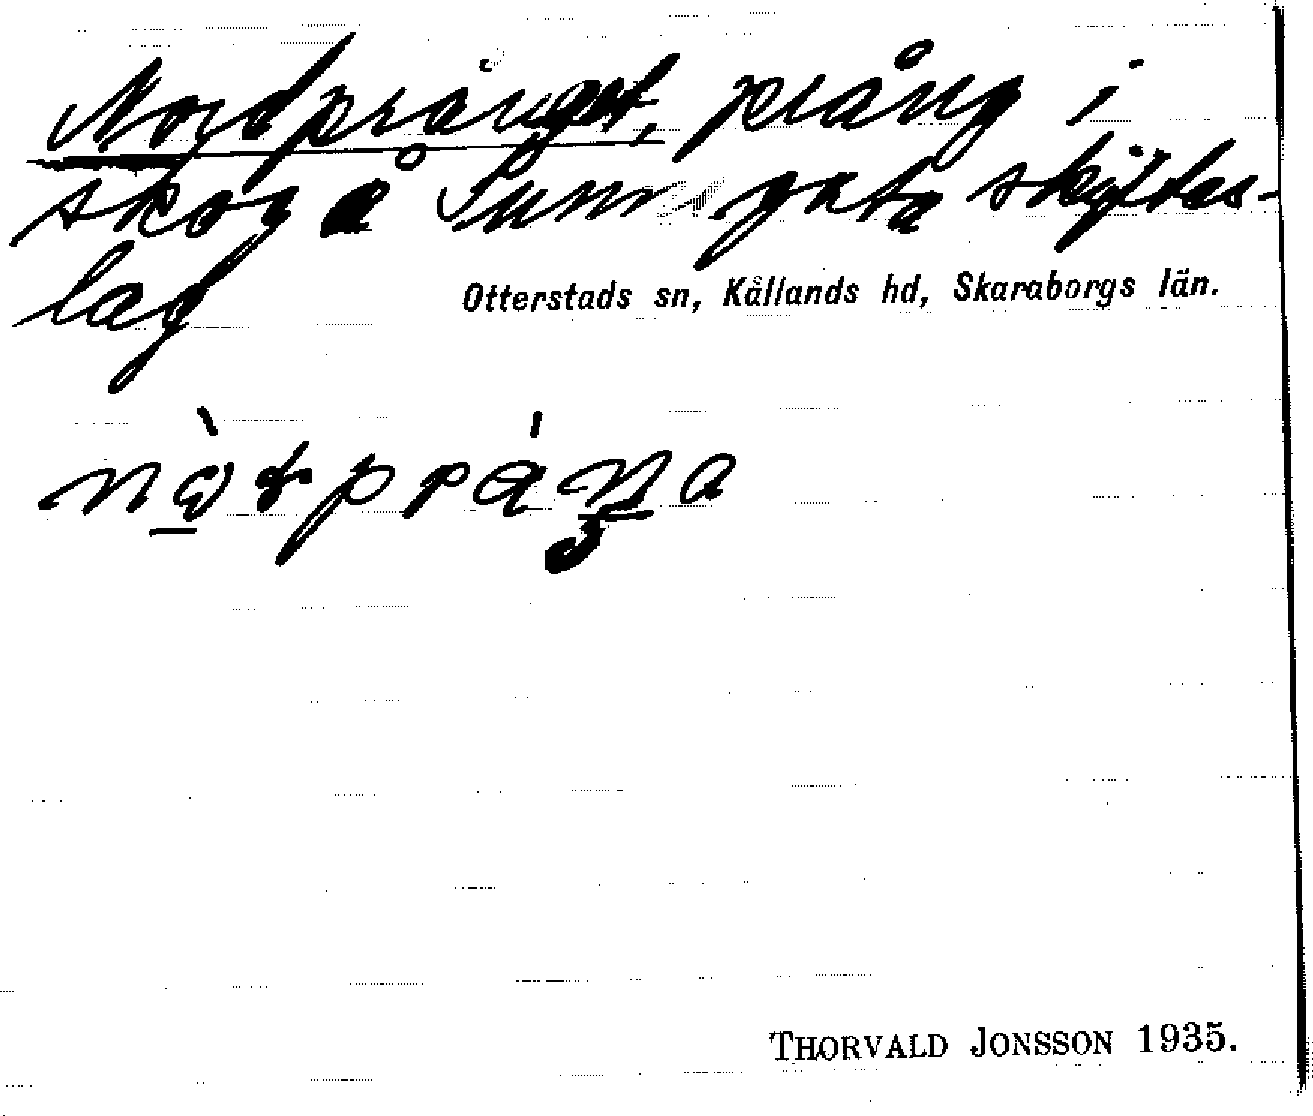 Nordprånget, prång i
skog å Sunn gata skyttes-
lag
Otterstads sn, Kållands hd, Skaraborgs län.
THORVALD JONSSON 1935.